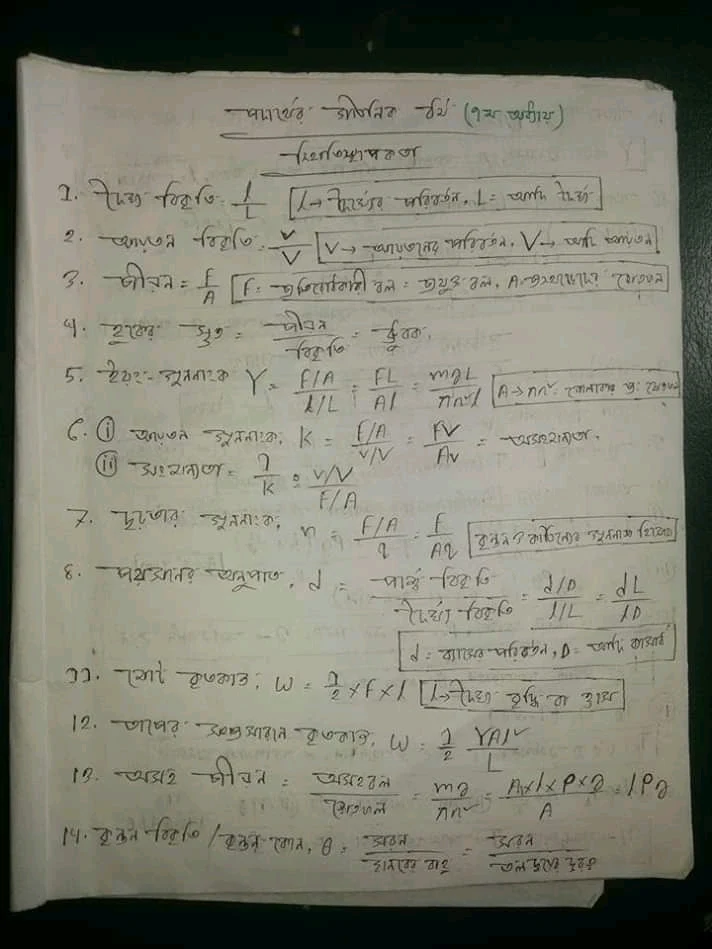 পদার্থের গাঠনিক ধর্ম (৭ম অধ্যায়)
স্থিতিস্থাপকতা
১. দৈর্ঘ্য বিকৃতি = l/L [l → দৈর্ঘ্যের পরিবর্তন, L = আদি দৈর্ঘ্য]
২. আয়তন বিকৃতি = v/V [v → আয়তনের পরিবর্তন, V → আদি আয়তন]
৩. পীড়ন = F/A [F = প্রতিরোধকারী বল = প্রযুক্ত বল, A = প্রস্থচ্ছেদের ক্ষেত্রফল]
৪. হুকের সূত্র = পীড়ন/বিকৃতি = ধ্রুবক
৫. ইয়ং-গুণনাংক Y = (F/A)/(l/L) = FL/Al = mgL/πr²l [A → πr²
৬. (i) আয়তন গুণনাংক, K = (F/A)/(v/V) = FV/Av = অসংনম্যতা
(ii) সংনম্যতা = 1/K = (v/V)/(F/A)
7. দৃঢ়তার গুণনাংক, n = (F/A)/θ = F/Aθ
৮. পয়সনের অনুপাত, d = পার্শ্ব বিকৃতি/দৈর্ঘ্য বিকৃতি = (d/D)/(l/L) = dL/lD
d = ব্যাসের পরিবর্তন, D = আদি ব্যাস
১১. মোট কৃতকাজ, W = 1/2 × F × l [l → দৈর্ঘ্য বৃদ্ধি বা হ্রাস]
১২. তারের সম্প্রসারণে কৃতকাজ, W = 1/2 YAl²/L
১৩. অসহ পীড়ন = অসহ বল/ক্ষেত্রফল = mg/πr² = A×l×ρ×g/A = lρg
১৪. কৃন্তন বিকৃতি / কৃন্তন কোন, θ = সরন/ = সরন/তলদ্বয়ের দূরত্ব